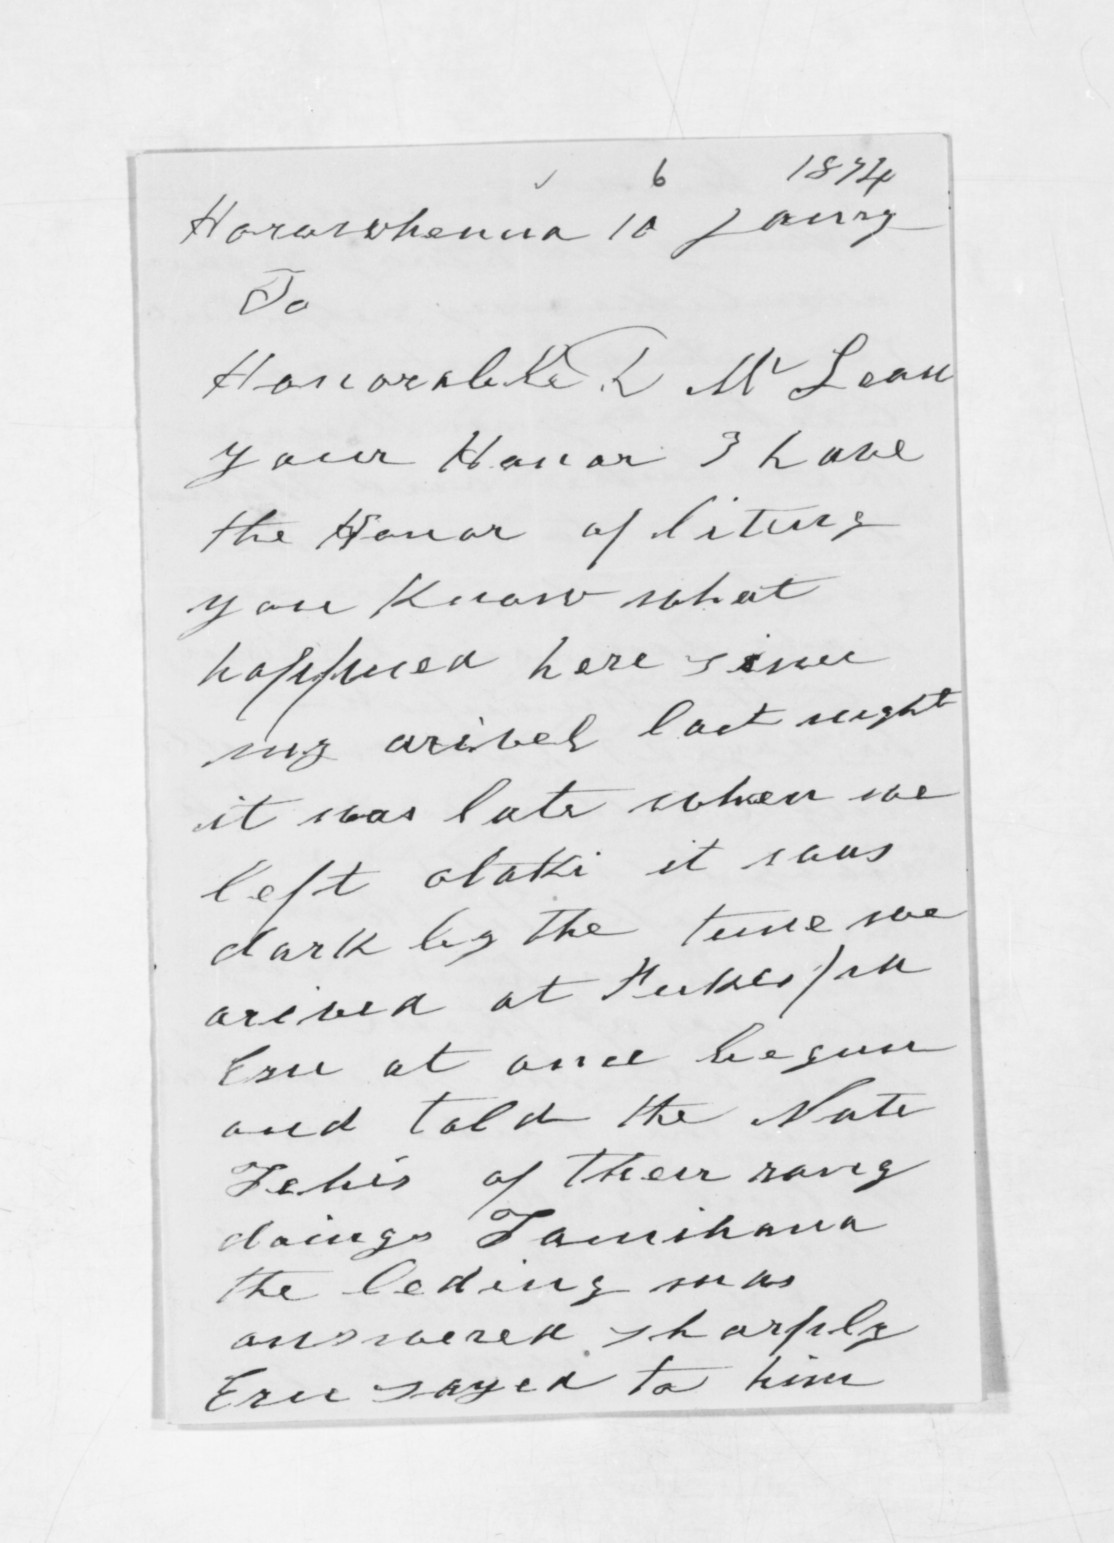 6 1874
Horowhenua 10 Janry
To
Honorable D Mc Lean
your Honor I have
the Honor of liting
you Know what
happned here since
my arivel last night
it was late when we
left otaki it was
dark by the time we
arived at
Eru at once begun
and told the Nate
Tehis of their rong
doings Tamihana
the leding man
answered sharply
Eru sayed to him